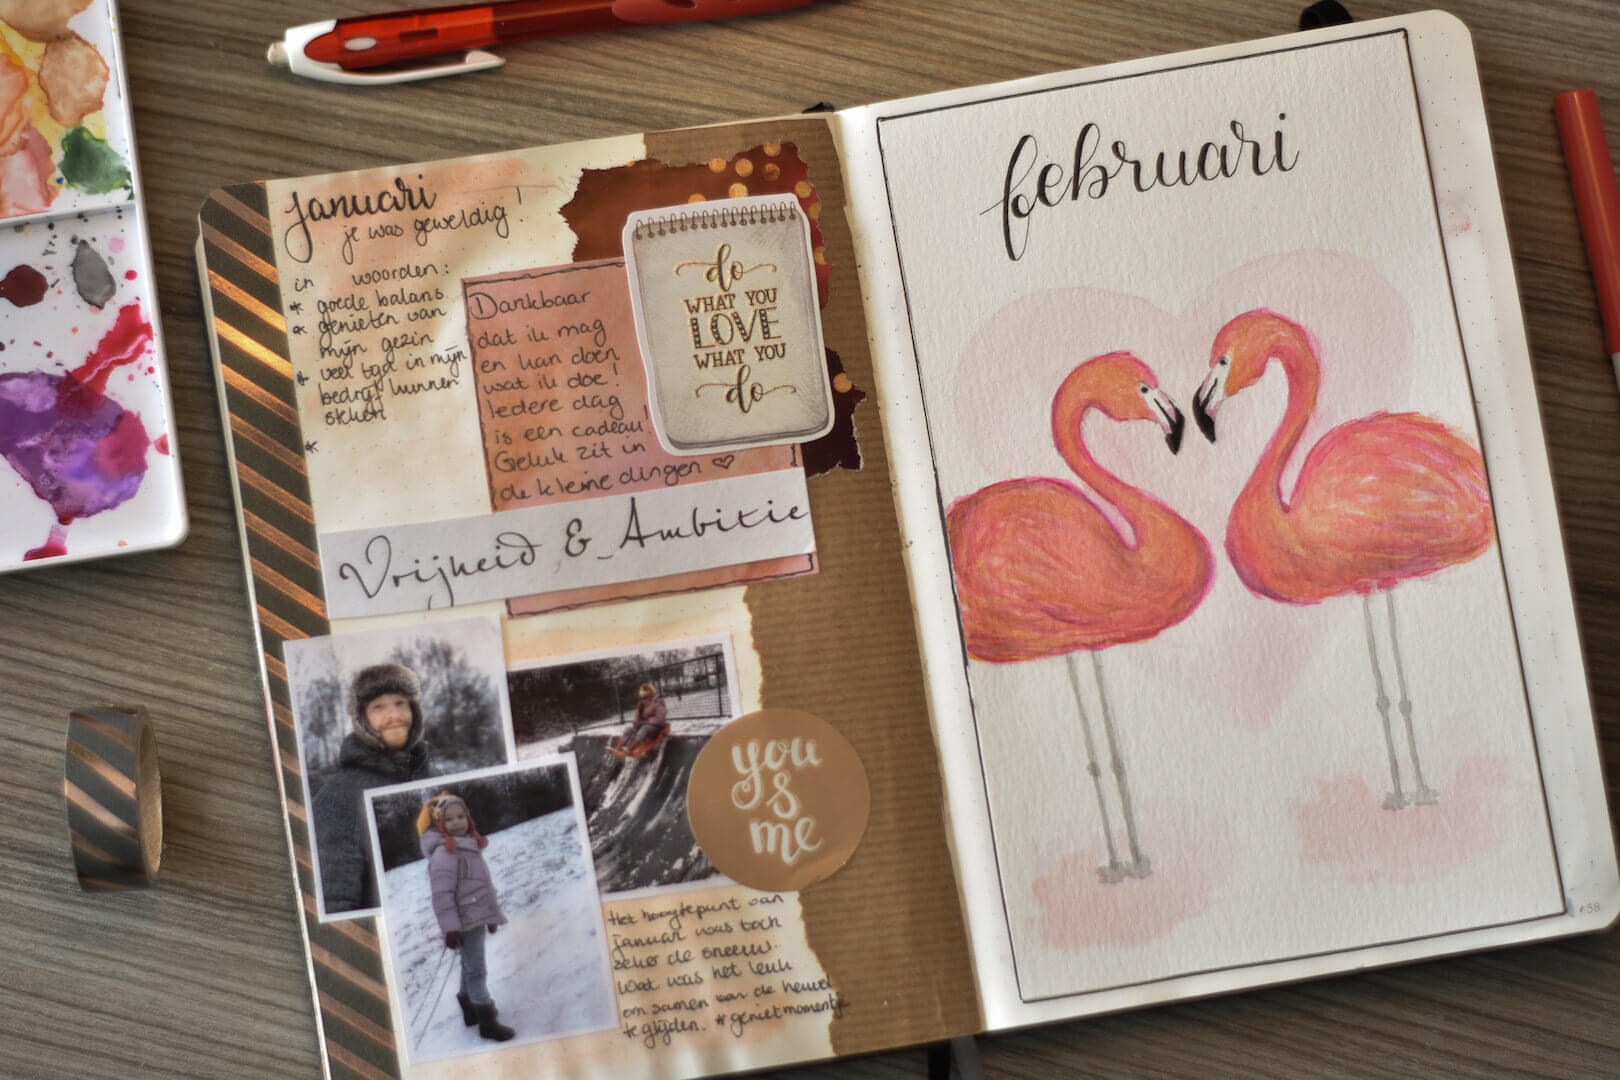 januari
je was geweldig!
in woorden:
* goede balans
* genieten van
mijn gezin
* veel tijd in mijn
bedrijf kunnen
steken
*
Dankbaar
dat ik mag
en kan doen
wat ik doe!
Iedere dag
is een cadeau!
Geluk zit in
de kleine dingen ♡
do
WHAT YOU
LOVE
WHAT YOU
do
Vrijheid & Ambitie
you
&
me
Het hoogtepunt van
januari was toch
zeker de sneeuw.
Wat was het leuk
om samen van de heuvel
te glijden. #genietmomentje
februari
158